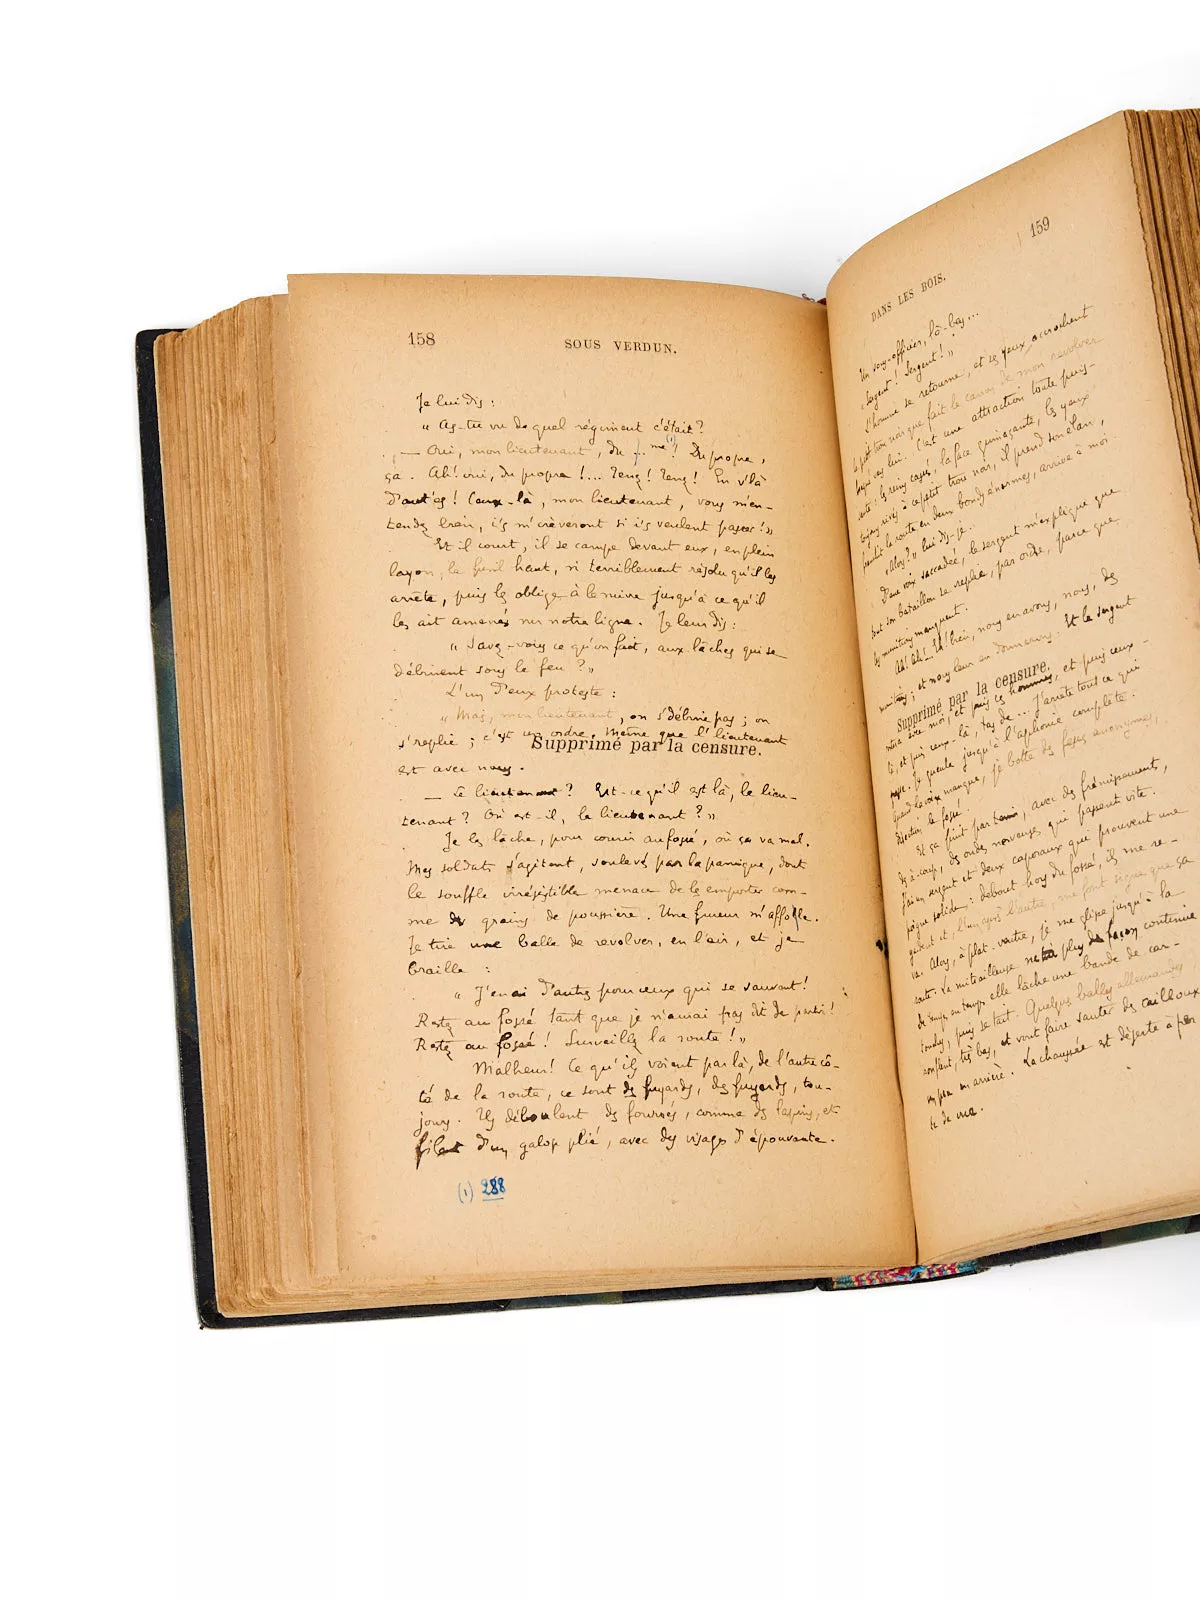 158
SOUS VERDUN.
Je lui dis :
« As-tu vu de quel régiment c'était ?
— Oui, mon lieutenant, du ... me (1) ! Du propre,
ça. Ah ! oui, du propre !... Tenez ! Tenez ! En v'là
d'aut'es ! Ceux-là, mon lieutenant, vous m'en-
tendez bien, i's m'crèveront si i's veulent passer ! »
Et il court, il se campe devant eux, en plein
layon, le fusil haut, si terriblement résolu qu'il les
arrête, puis les oblige à le suivre jusqu'à ce qu'il
les ait amenés sur notre ligne. Je leur dis :
« Savez-vous ce qu'on fait, aux lâches qui se
débinent sous le feu ? »
L'un d'eux proteste :
« Mais, mon lieutenant, on s'débine pas ; on
s'replie ; c'est un ordre. Même que l'lieutenant
Supprimé par la censure.
est avec nous.
— Le lieutenant ? Est-ce qu'il est là, le lieu-
tenant ? Où est-il, le lieutenant ? »
Je les lâche, pour courir au fossé, où ça va mal.
Mes soldats s'agitent, soulevés par la panique, dont
le souffle irrésistible menace de les emporter com-
me des grains de poussière. Une fureur m'affole.
Je tire une balle de revolver, en l'air, et je
braille :
« J'en ai d'autres pour ceux qui se sauvent !
Restez au fossé tant que je n'aurai pas dit de partir !
Restez au fossé ! Surveillez la route ! »
Malheur ! Ce qu'ils voient par là, de l'autre cô-
té de la route, ce sont des fuyards, des fuyards, tou-
jours. Ils déboulent des fourrés, comme des lapins, et
filent d'un galop plié, avec des visages d'épouvante.
(1) 288
159
DANS LES BOIS.
Un sous-officier, là-bas...
« Sergent ! Sergent ! »
L'homme se retourne, et ses yeux accrochent
le petit trou noir que fait le canon de mon revolver
braqué vers lui. C'est une attraction toute puis-
sante : les reins cassés, la face grimaçante, les yeux
toujours rivés à ce petit trou noir, il prend son élan,
franchit la route en deux bonds énormes, arrive à moi
« Alors ? » lui dis-je...
D'une voix saccadée, le sergent m'explique que
tout son bataillon se replie, par ordre, parce que
les munitions manquent.
« Ah ! Ah !... Eh ! bien, nous en avons, nous, des
munitions ; et nous leur en donnerons. Et le sergent
Supprimé par la censure.
restera avec moi, et puis ces hommes, et puis ceux-
là, et puis ceux-là, tas de ... J'arrête tout ce qui
passe. Je gueule jusqu'à l'aphonie complète.
Quand la voix manque, je botte des fesses anonymes,
direction le fossé.
Et ça finit par tenir, avec des frémissements,
des à-coups, des ondes nerveuses qui passent vite.
J'ai un sergent et deux caporaux qui prouvent une
poigne solide : debout hors du fossé, ils me re-
gardent et, l'un après l'autre, me font signe que ça
va. Alors, à plat-ventre, je me glisse jusqu'à la
route. La mitrailleuse ne tire plus de façon continue
De temps en temps elle lâche une bande de car-
touches, puis se tait. Quelques balles allemandes
ronflent, très bas, et vont faire sauter des cailloux
un peu en arrière. La chaussée est déserte à per-
te de vue.